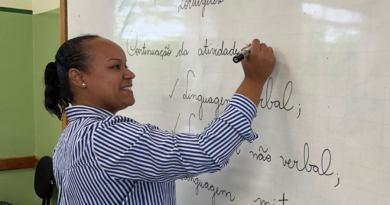 Português
Continuação da atividade
✓ Linguagem verbal;
✓ L m não verbal;
Linguagem mist